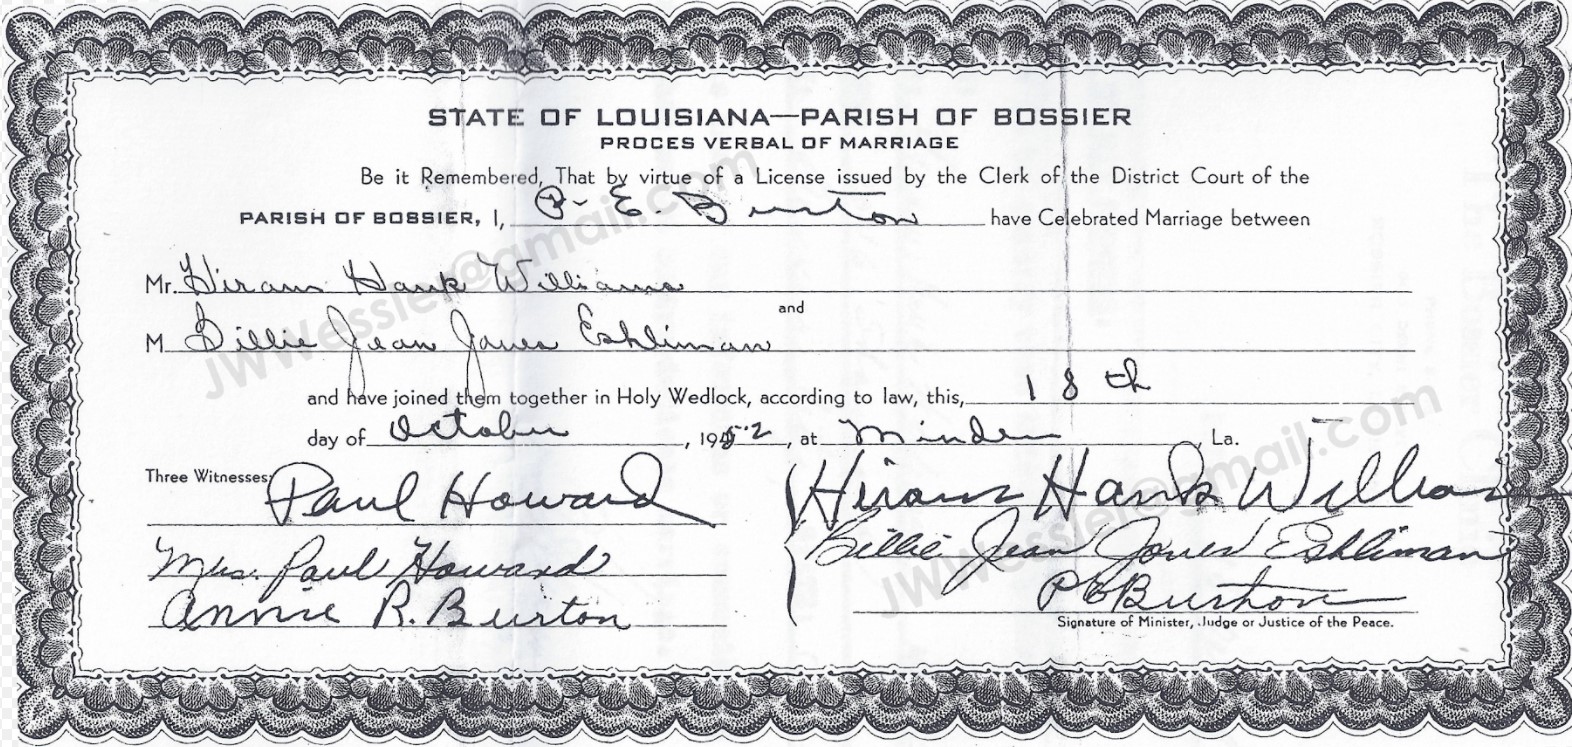 STATE OF LOUISIANA—PARISH OF BOSSIER
PROCES VERBAL OF MARRIAGE
Be it Remembered, That by virtue of a License issued by the Clerk of the District Court of the
PARISH OF BOSSIER, I, P. E. Burton have Celebrated Marriage between
Mr. Hiram Hank Williams
and
M Billie Jean Jones Eshliman
and have joined them together in Holy Wedlock, according to law, this, 18th
day of October, 1952, at Minden, La.
Three Witnesses: Paul Howard
Hiram Hank Williams
Mrs. Paul Howard
Billie Jean Jones Eshliman
Annie R. Burton
P E Burton
Signature of Minister, Judge or Justice of the Peace.
JWWessler@gmail.com
JWWessler@gmail.com